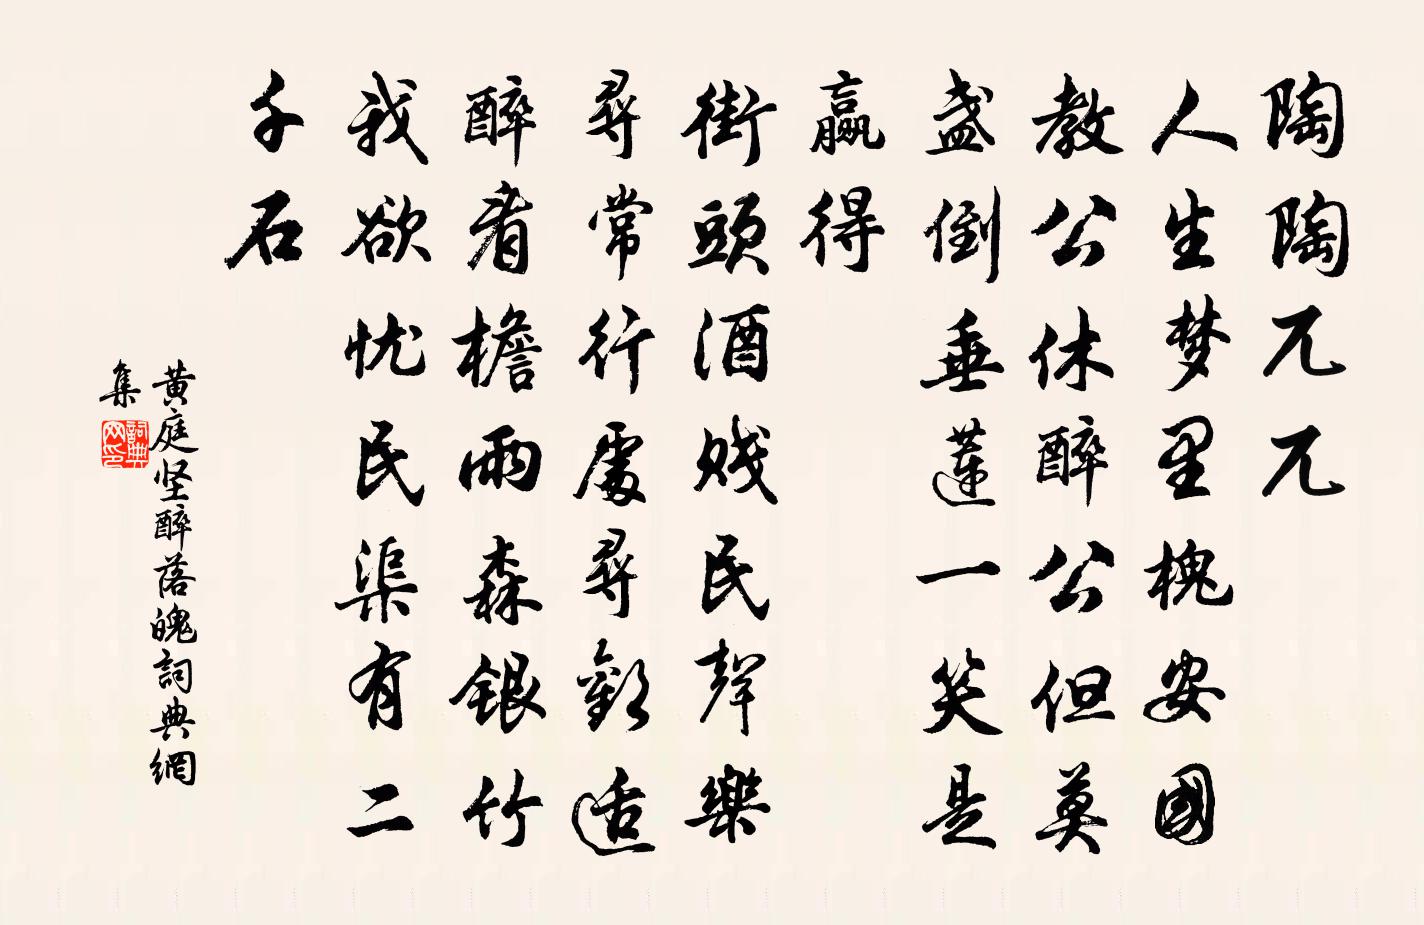 陶陶兀兀
人生梦里槐安國
教公休醉公但莫
盏倒垂蓮一笑是
赢得
街頭酒贱民聲樂
尋常行處尋歡适
醉看檐雨森银竹
我欲忧民渠有二
千石
黄庭坚醉落魄詞典網
集
詞典
网印